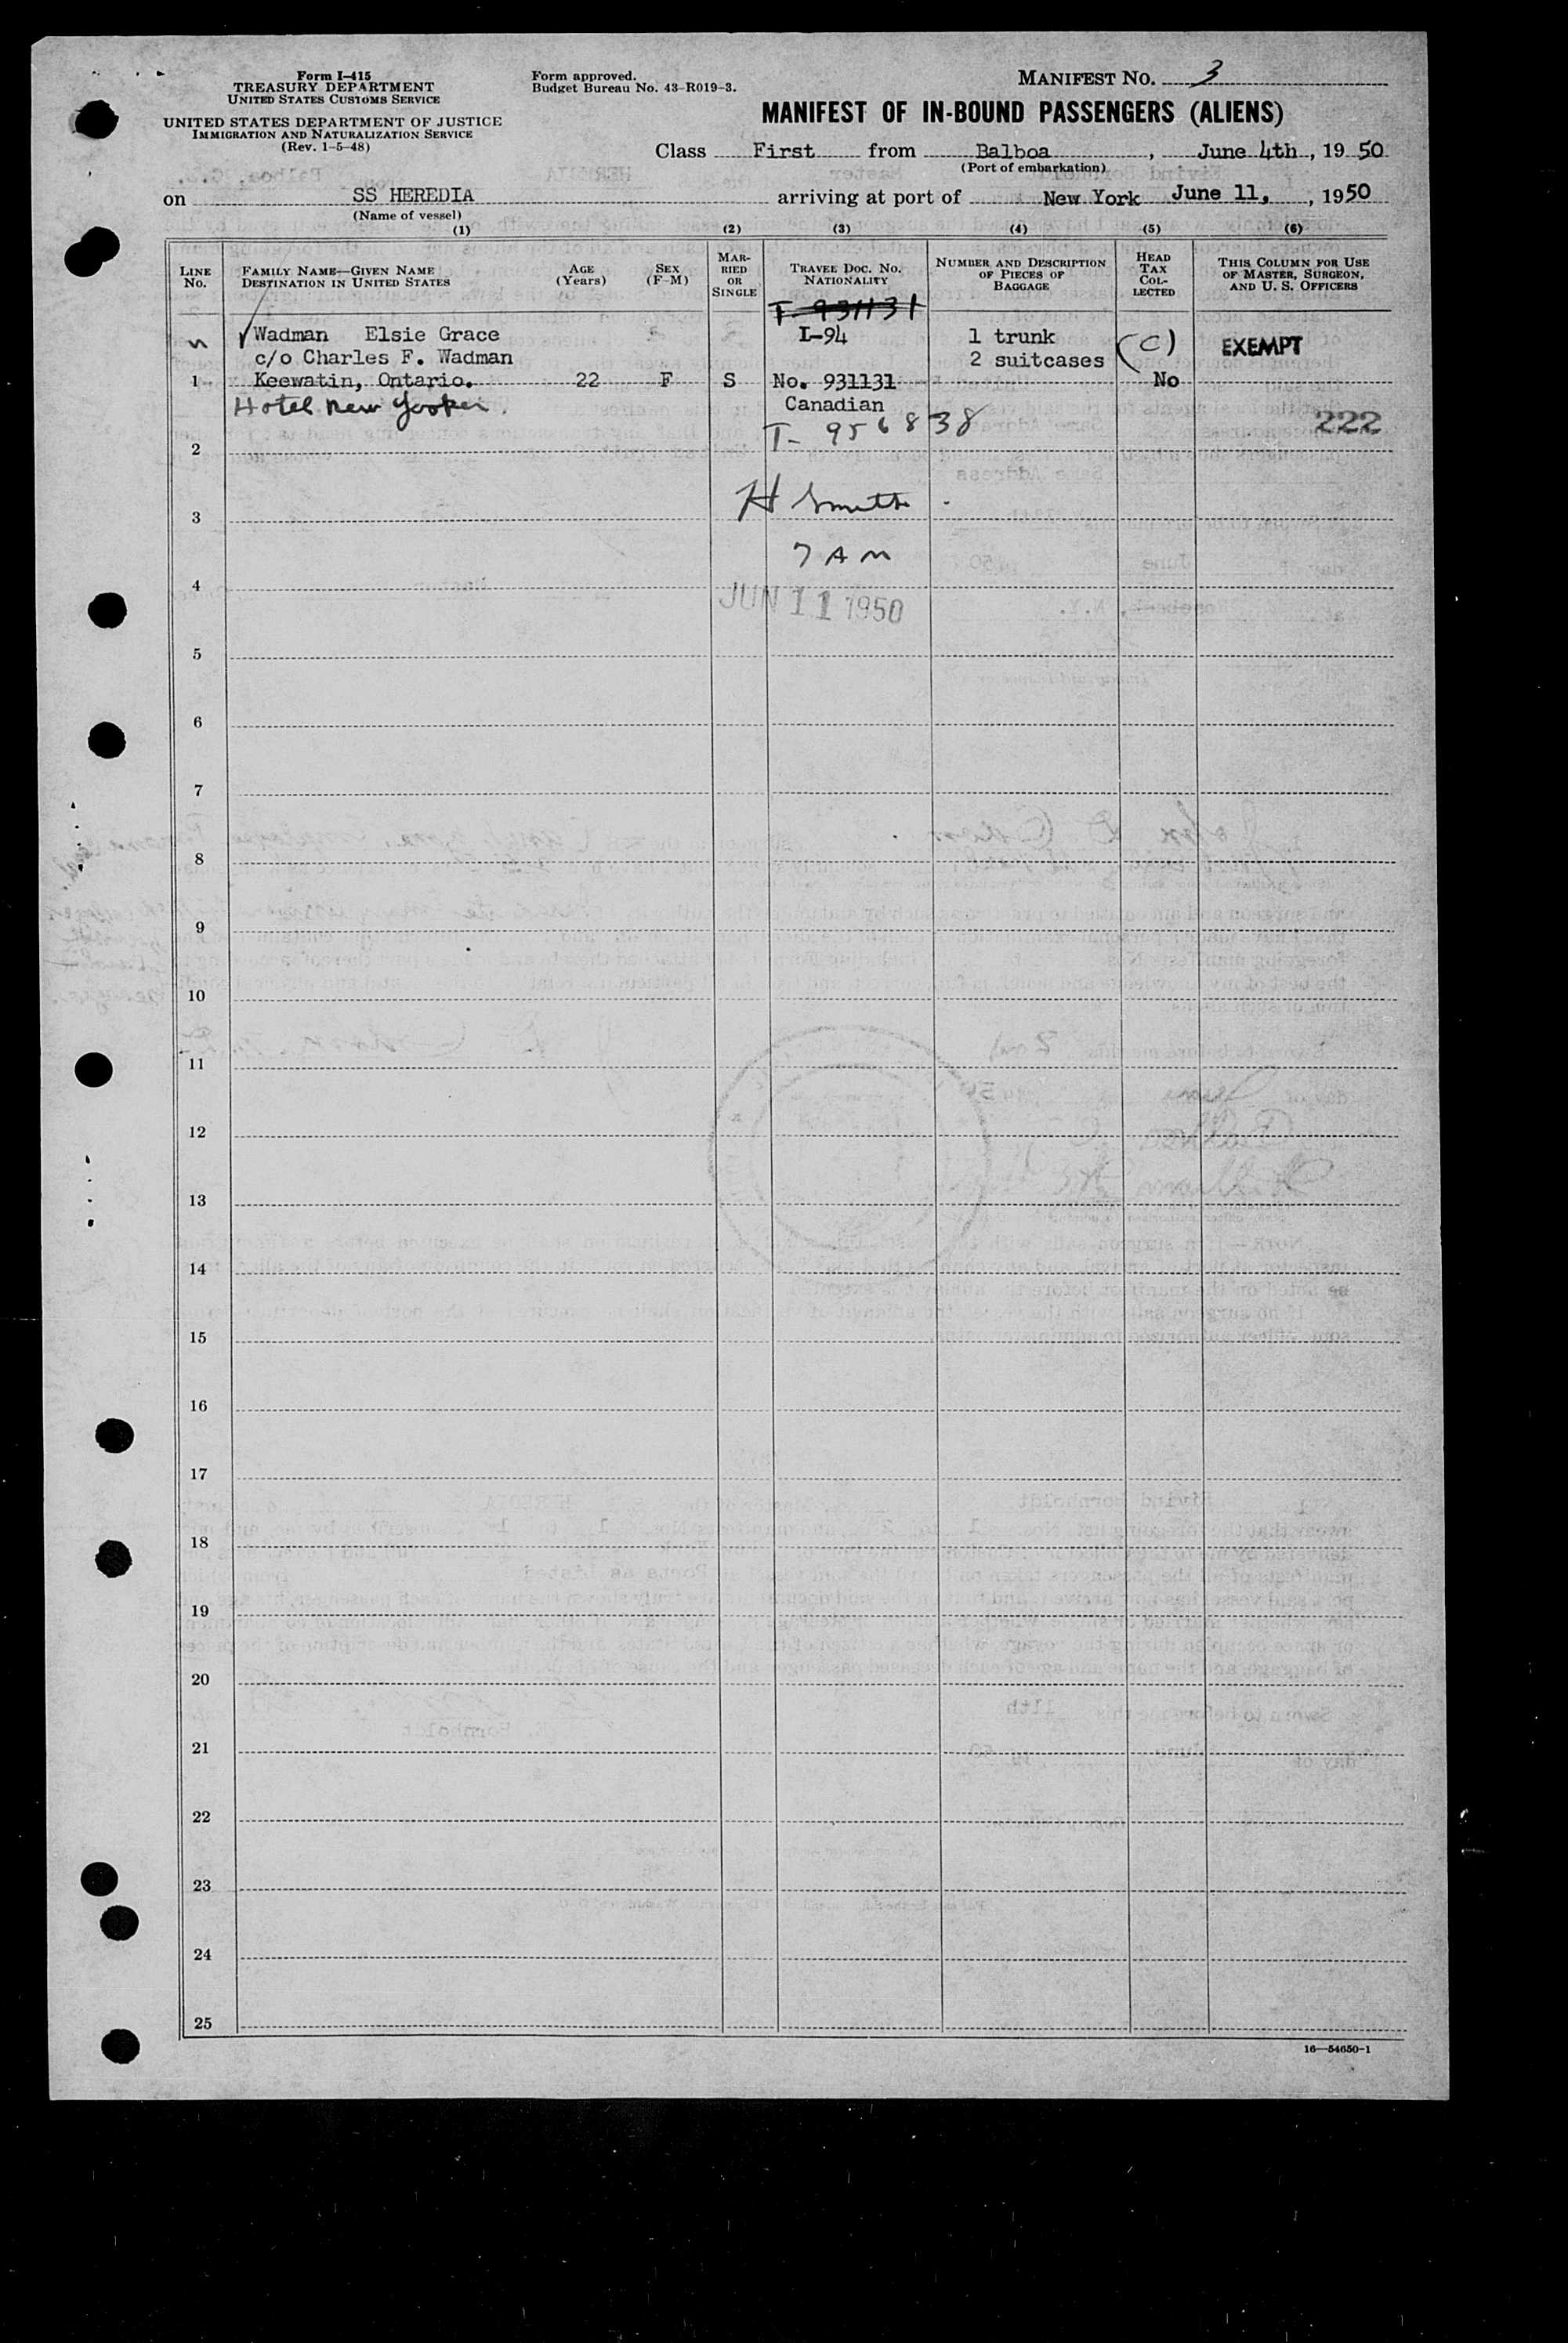 Form I-415
TREASURY DEPARTMENT
UNITED STATES CUSTOMS SERVICE
UNITED STATES DEPARTMENT OF JUSTICE
IMMIGRATION AND NATURALIZATION SERVICE
(Rev. 1-5-48)
Form approved.
Budget Bureau No. 43-R019-3.
MANIFEST NO. 3
MANIFEST OF IN-BOUND PASSENGERS (ALIENS)
Class First from Balboa, June 4th, 1950
(Port of embarkation)
on SS HEREDIA arriving at port of New York June 11, , 1950
(Name of vessel)
(1) (2) (3) (4) (5) (6)
LINE No.
FAMILY NAME—GIVEN NAME
DESTINATION IN UNITED STATES
AGE (Years)
SEX (F-M)
MARRIED OR SINGLE
TRAVEL DOC. NO.
NATIONALITY
NUMBER AND DESCRIPTION OF PIECES OF BAGGAGE
HEAD TAX COLLECTED
THIS COLUMN FOR USE OF MASTER, SURGEON, AND U. S. OFFICERS
T-931131
Wadman Elsie Grace I-94 1 trunk (C) EXEMPT
c/o Charles F. Wadman 2 suitcases
1 Keewatin, Ontario. 22 F S No. 931131 No
Hotel New Yorker. Canadian
T-956838 222
2
H Smith
3
7 AM
4
JUN 11 1950
5
6
7
8
9
10
11
12
13
14
15
16
17
18
19
20
21
22
23
24
25
16—54650-1